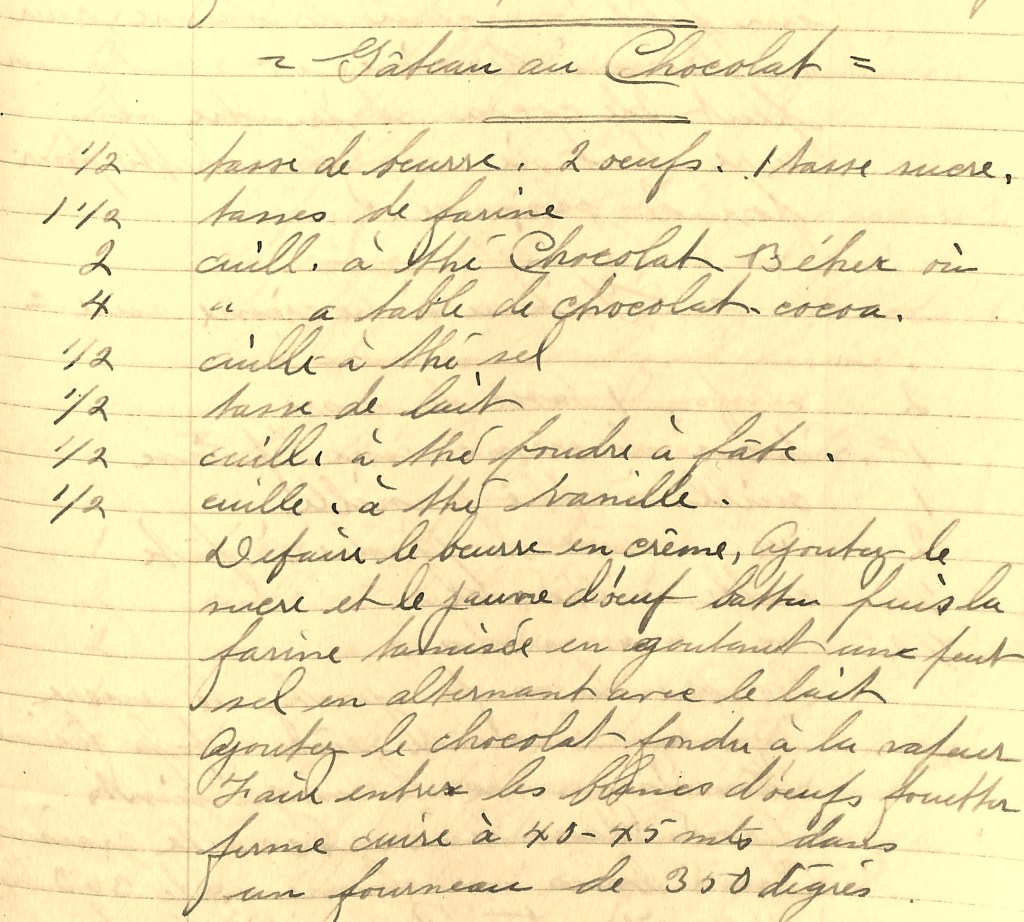 ~ Gâteau au Chocolat =
1/2 tasse de beurre. 2 oeufs. 1 tasse sucre,
1 1/2 tasses de farine
2 cuill. à thé Chocolat où
4 " a table de chocolat-cocoa.
1/2 cuille à thé sel
1/2 tasse de lait
1/2 cuill. à thé poudre à pâte.
1/2 cuille. à thé vanille.
Defaire le beurre en crême, Ajoutez le
sucre et le jaune d'oeuf battu puis la
farine tamisée en ajoutant un peut
sel en alternant avec le lait
Ajoutez le chocolat fondu à la vapeur
Faire entrer les blancs d'oeufs fouetter
ferme cuire à 40-45 mts dans
un fourneau de 350 dégrés